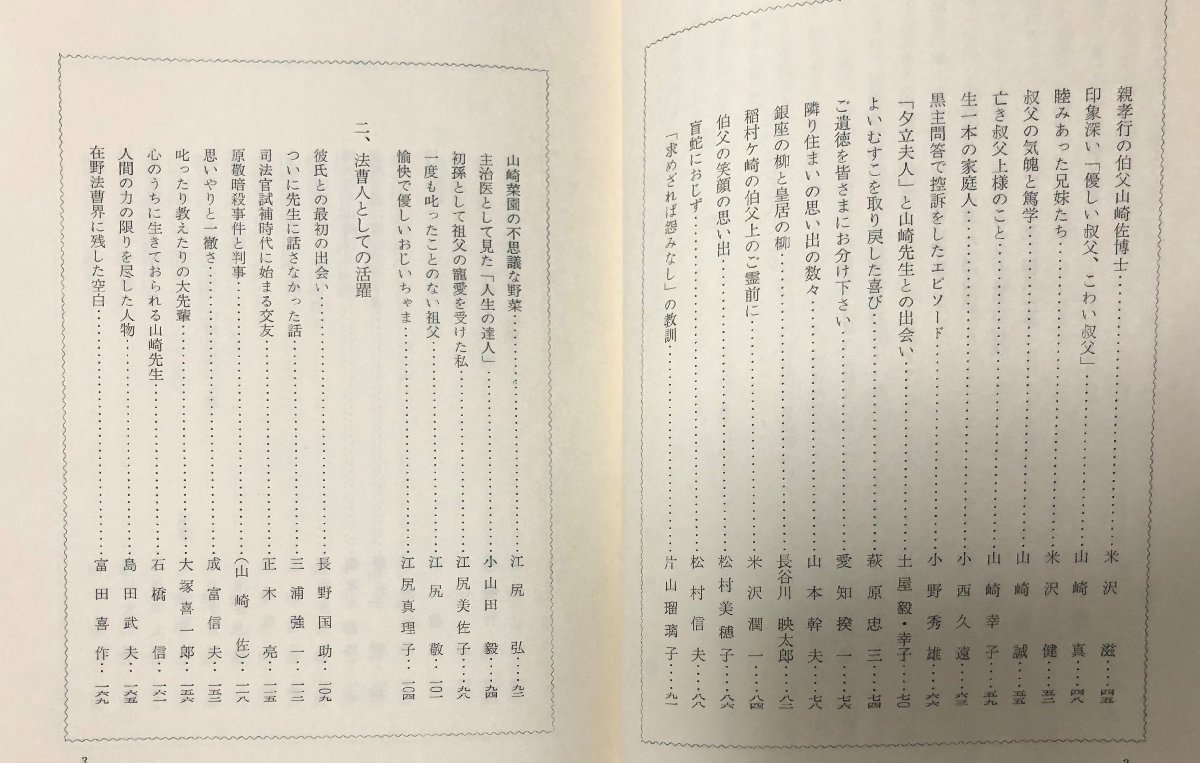 親孝行の伯父山崎佐博士……米沢滋…四五
印象深い「優しい叔父、こわい叔父」……山崎真…四八
睦みあった兄妹たち……米沢健…五二
叔父の気魄と篤学……山崎誠…五五
亡き叔父上様のこと……山崎幸子…五九
生一本の家庭人……小西久遠…六三
黒主問答で控訴をしたエピソード……小野秀雄…六六
「夕立夫人」と山崎先生との出会い……土屋毅・幸子…七〇
よいむすこを取り戻した喜び……萩原忠三…七四
ご遺徳を皆さまにお分け下さい……愛知揆一…七六
隣り住まいの思い出の数々……山本幹夫…七八
銀座の柳と皇居の柳……長谷川映太郎…八二
稲村ケ崎の伯父上のご霊前に……米沢潤一…八四
伯父の笑顔の思い出……松村美穂子…八六
盲蛇におじず……松村信夫…八八
「求めざれば怨みなし」の教訓……片山瑠璃子…九一
山崎菜園の不思議な野菜……江尻弘…九二
主治医として見た「人生の達人」……小山田毅…九四
初孫として祖父の寵愛を受けた私……江尻美佐子…九八
一度も叱ったことのない祖父……江尻敬…一〇一
愉快で優しいおじいちゃま……江尻真理子…一〇四
二、法曹人としての活躍
彼氏との最初の出会い……長野国助…一〇九
ついに先生に話さなかった話……三浦強一…一一三
司法官試補時代に始まる交友……正木亮…一一五
原敬暗殺事件と判事……(山崎佐)…一一八
思いやりと一徹さ……成富信夫…一五三
叱ったり教えたりの大先輩……大塚喜一郎…一五六
心のうちに生きておられる山崎先生……石橋信…一六一
人間の力の限りを尽した人物……島田武夫…一六五
在野法曹界に残した空白……富田喜作…一六九
3